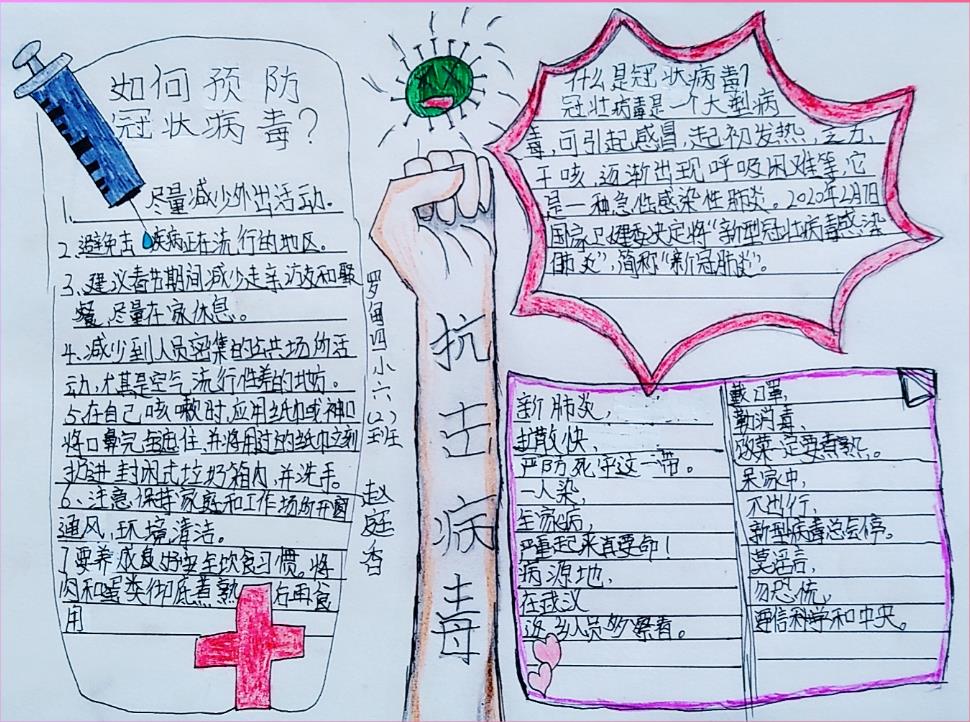 如何预防
冠状病毒？
1、尽量减少外出活动。
2、避免去疾病正在流行的地区。
3、建议春节期间减少走亲访友和聚
餐，尽量在家休息。
4、减少到人员密集的公共场所活
动，尤其是空气流行性差的地方。
5、在自己咳嗽时，应用纸巾或袖口
将口鼻完全遮住，并将用过的纸巾立刻
扔进封闭式垃圾箱内，并洗手。
6、注意保持家庭和工作场所开窗
通风，环境清洁。
7要养成良好安全饮食习惯。将
肉和蛋类彻底煮熟后再食
用
罗甸四小六(2)班
赵庭香
抗击病毒
什么是冠状病毒？
冠壮病毒是一个大型病
毒，可引起感冒，起初发热，乏力、
干咳，逐渐出现呼吸困难等，它
是一种急性感染性肺炎。2020年2月7日
国家卫健委决定将“新型冠壮病毒感染
肺炎”，简称“新冠肺炎”。
新肺炎，
扩散快，
严防死守这一带。
一人染，
全家病，
严重起来真要命！
病源地，
在武汉
返乡人员多察看。
戴口罩，
勤消毒，
做菜一定要煮熟。
呆家中，
不出行，
新型病毒总会停。
莫谣言，
勿恐慌，
要信科学和中央。